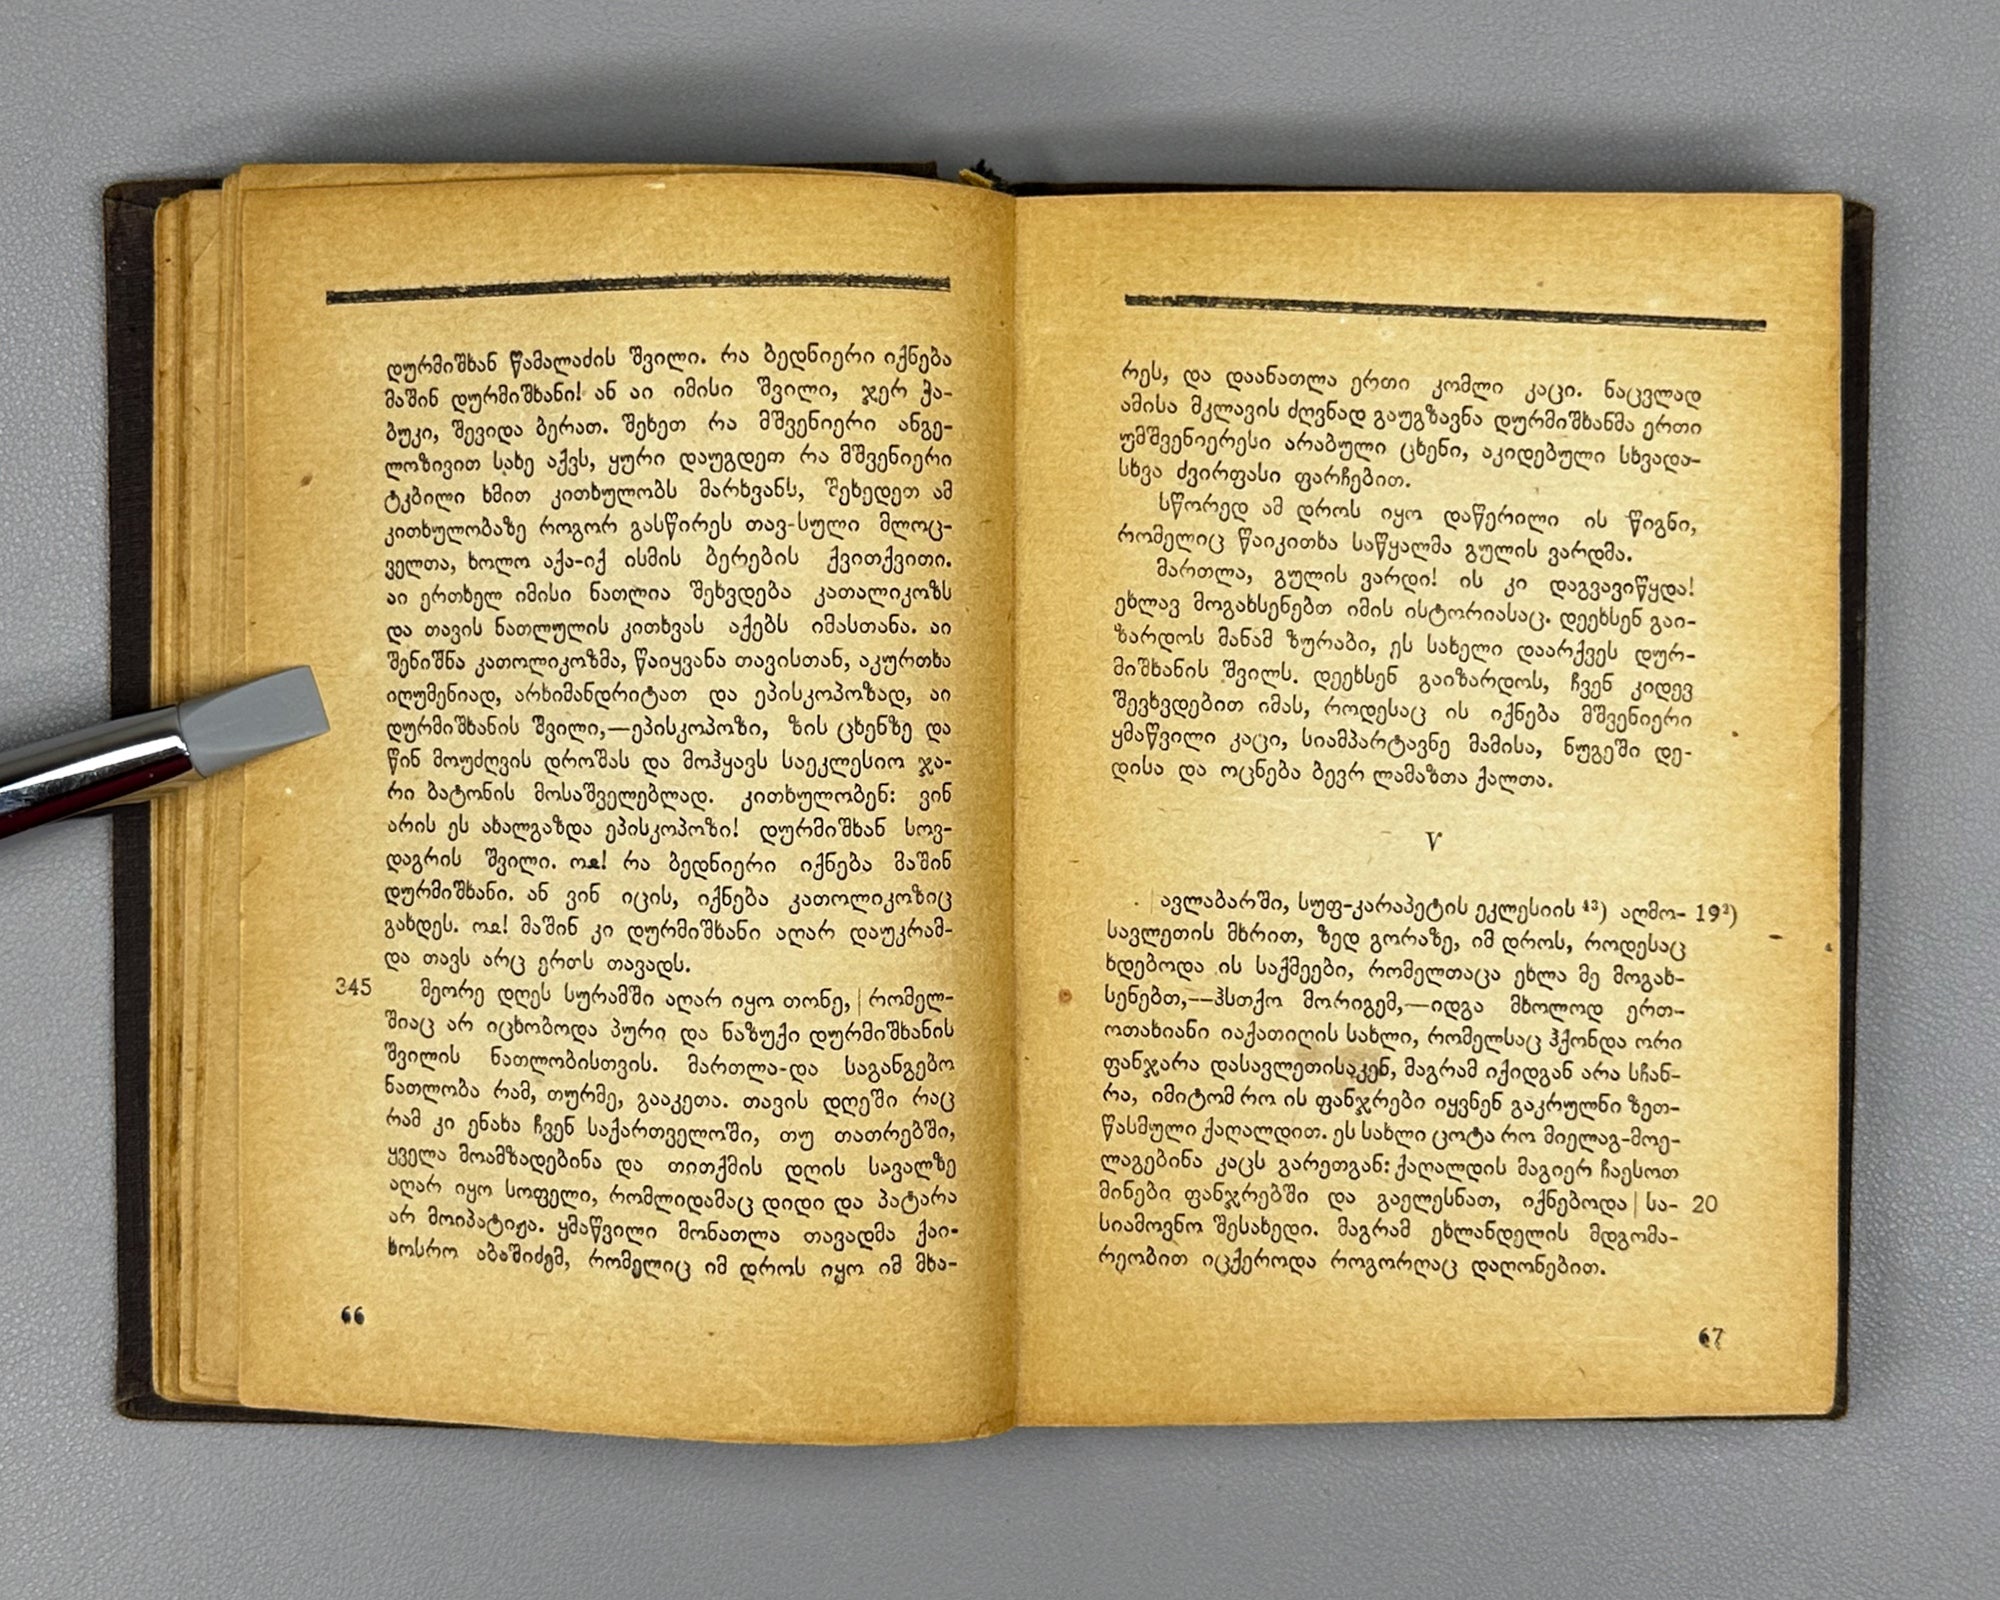 დურმიშხან წამალაძის შვილი. რა ბედნიერი იქნება
მაშინ დურმიშხანი! ან აი იმისი შვილი, ჯერ ჭა-
ბუკი, შევიდა ბერათ. შეხეთ რა მშვენიერი ანგე-
ლოზივით სახე აქვს, ყური დაუგდეთ რა მშვენიერი
ტკბილი ხმით კითხულობს მარხვანს, შეხედეთ ამ
კითხულობაზე როგორ გასწირეს თავ-სული მლოც-
ველთა, ხოლო აქა-იქ ისმის ბერების ქვითქვითი.
აი ერთხელ იმისი ნათლია შეხვდება კათალიკოზს
და თავის ნათლულის კითხვას აქებს იმასთანა. აი
შენიშნა კათოლიკოზმა, წაიყვანა თავისთან, აკურთხა
იღუმენიად, არხიმანდრიტათ და ეპისკოპოზად, აი
დურმიშხანის შვილი,—ეპისკოპოზი, ზის ცხენზე და
წინ მოუძღვის დროშას და მოჰყავს საეკლესიო ჯა-
რი ბატონის მოსაშველებლად. კითხულობენ: ვინ
არის ეს ახალგაზდა ეპისკოპოზი! დურმიშხან სოვ-
დაგრის შვილი. ოჲ! რა ბედნიერი იქნება მაშინ
დურმიშხანი. ან ვინ იცის, იქნება კათოლიკოზიც
გახდეს. ოჲ! მაშინ კი დურმიშხანი აღარ დაუკრამ-
და თავს არც ერთს თავადს.
345 მეორე დღეს სურამში აღარ იყო თონე, | რომელ-
შიაც არ იცხობოდა პური და ნაზუქი დურმიშხანის
შვილის ნათლობისთვის. მართლა-და საგანგებო
ნათლობა რამ, თურმე, გააკეთა. თავის დღეში რაც
რამ კი ენახა ჩვენ საქართველოში, თუ თათრებში,
ყველა მოამზადებინა და თითქმის დღის სავალზე
აღარ იყო სოფელი, რომლიდამაც დიდი და პატარა
არ მოიპატიჟა. ყმაწვილი მონათლა თავადმა ქაი-
ხოსრო აბაშიძემ, რომელიც იმ დროს იყო იმ მხა-
66
რეს, და დაანათლა ერთი კომლი კაცი. ნაცვლად
ამისა მკლავის ძღვნად გაუგზავნა დურმიშხანმა ერთი
უმშვენიერესი არაბული ცხენი, აკიდებული სხვადა-
სხვა ძვირფასი ფარჩებით.
სწორედ ამ დროს იყო დაწერილი ის წიგნი,
რომელიც წაიკითხა საწყალმა გულის ვარდმა.
მართლა, გულის ვარდი! ის კი დაგვავიწყდა!
ეხლავ მოგახსენებთ იმის ისტორიასაც. დეეხსენ გაი-
ზარდოს მანამ ზურაბი, ეს სახელი დაარქვეს დურ-
მიშხანის შვილს. დეეხსენ გაიზარდოს, ჩვენ კიდევ
შევხვდებით იმას, როდესაც ის იქნება მშვენიერი
ყმაწვილი კაცი, სიამპარტავნე მამისა, ნუგეში დე-
დისა და ოცნება ბევრ ლამაზთა ქალთა.
V
| ავლაბარში, სუფ-კარაპეტის ეკლესიის ⁴³) აღმო- 19²)
სავლეთის მხრით, ზედ გორაზე, იმ დროს, როდესაც
ხდებოდა ის საქმეები, რომელთაცა ეხლა მე მოგახ-
სენებთ,—ჰსთქო მორიგემ,—იდგა მხოლოდ ერთ-
ოთახიანი იაქათიღის სახლი, რომელსაც ჰქონდა ორი
ფანჯარა დასავლეთისაკენ, მაგრამ იქიდგან არა სჩან-
რა, იმიტომ რო ის ფანჯრები იყვნენ გაკრულნი ზეთ-
წასმული ქაღალდით. ეს სახლი ცოტა რო მიელაგ-მოე-
ლაგებინა კაცს გარეთგან: ქაღალდის მაგიერ ჩაესოთ
მინები ფანჯრებში და გაელესნათ, იქნებოდა | სა- 20
სიამოვნო შესახედი. მაგრამ ეხლანდელის მდგომა-
რეობით იცქეროდა როგორღაც დაღონებით.
67